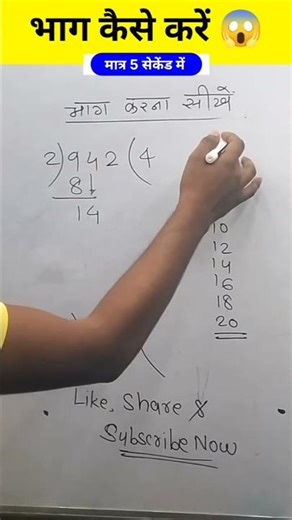 भाग कैसे करें 😱
मात्र 5 सेकेंड में
भाग करना सीखें
2)942(4
8↓
14
10
12
14
16
18
20
Like, Share &
Subscribe Now